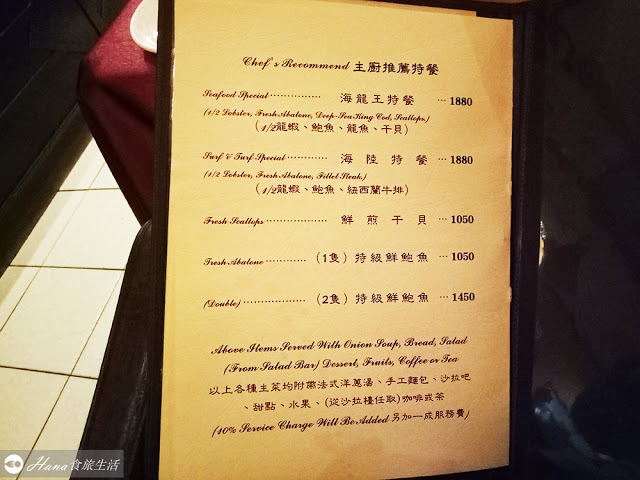 Chef's Recommend 主廚推薦特餐
Seafood Special ............... 海龍王特餐 ... 1880
(1/2 Lobster, Fresh Abalone, Deep-Sea King Cod, Scallops.)
(1/2龍蝦、鮑魚、龍魚、干貝)
Surf & Turf Special ............ 海陸特餐 ... 1880
(1/2 Lobster, Fresh Abalone, Fillet Steak.)
(1/2龍蝦、鮑魚、紐西蘭牛排)
Fresh Scallops .................. 鮮煎干貝 ... 1050
Fresh Abalone ............ (1隻) 特級鮮鮑魚 ... 1050
(Double) .................. (2隻) 特級鮮鮑魚 ... 1450
Above Items Served With Onion Soup, Bread, Salad
(From Salad Bar) Dessert, Fruits, Coffee or Tea
以上各種主菜均附帶法式洋蔥湯、手工麵包、沙拉吧
、甜點、水果、(從沙拉檯任取)咖啡或茶
(10% Service Charge Will Be Added 另加一成服務費)
Hana食旅生活